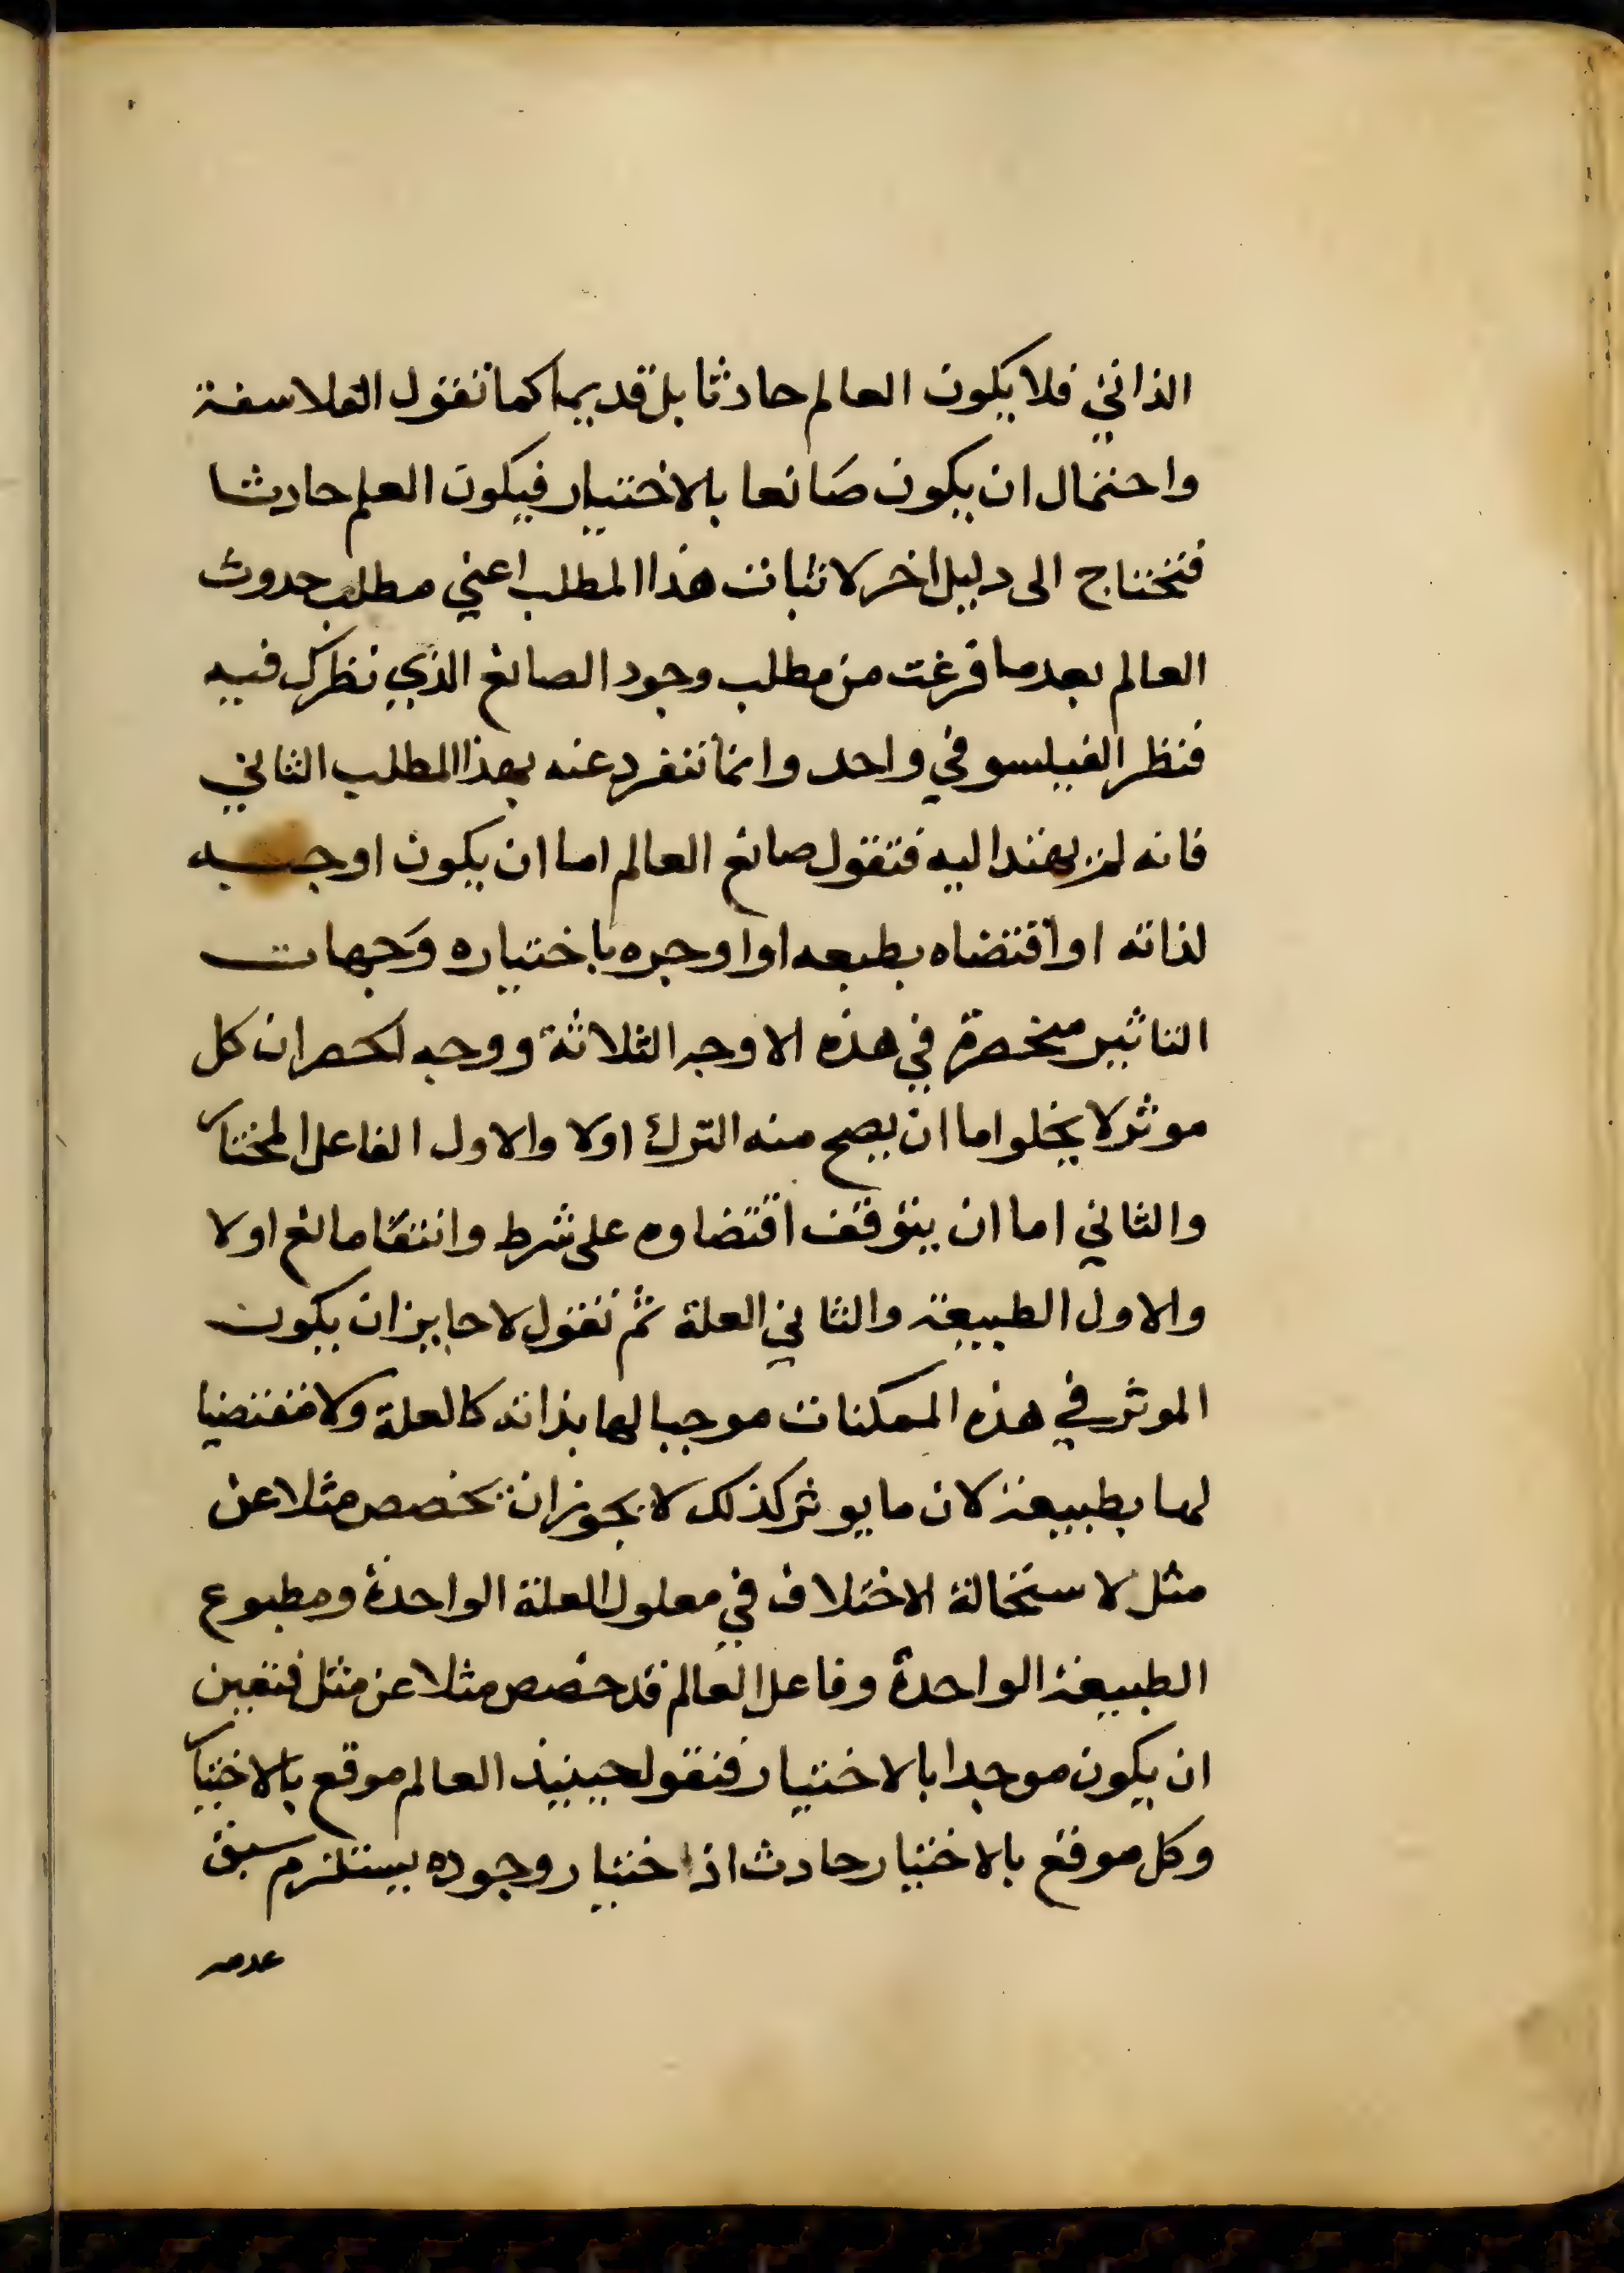 الذاتي فلا يكون العالم حادثا بل قديما كما تقول الفلاسفة
واحتمال ان يكون صَانعا بالاختيار فيكون العلم حادثا
فتحتاج الى دليل اخر لاثبات هذا المطلب اعني مطلب حدوث
العالم بعد ما فرغت من مطلب وجود الصانع الذي نظرك فيه
فنظر الفيلسوفي واحد وانما تنفرد عنه بهذا المطلب الثاني
فانه لم يهتدا ليه فتقول صانع العالم اما ان يكون اوجبه
لذاته او اقتضاه بطبعه او اوجده باختياره وَجهات
التاثير منحصرة في هذه الاوجه الثلاثة ووجه الحصر ان كل
موثر لا يخلوا اما ان يصح منه الترك اولا والاول الفاعل المختار
والثاني اما ان يتوقف اقتضاوه على شرط وانتفا مانع اولا
والاول الطبيعة والثاني العلة ثم تقول لا جايز ان يكون
الموثر في هذه الممكنات موجبا لها بذاته كالعلة ولا مقتضيا
لها بطبيعة لان ما يوثر كذلك لا يجوز ان يخصص مثلا عن
مثل لاستحالة الاختلاف في معلول العلة الواحدة ومطبوع
الطبيعة الواحدة وفاعل العالم قد خصص مثلا عن مثل فتعين
ان يكون موجدا بالاختيار فنقول حينيذ العالم موقع بالاختيار
وكل موقع بالاختيار حادث اذ اختيار وجوده يستلزم سبق
عدمه